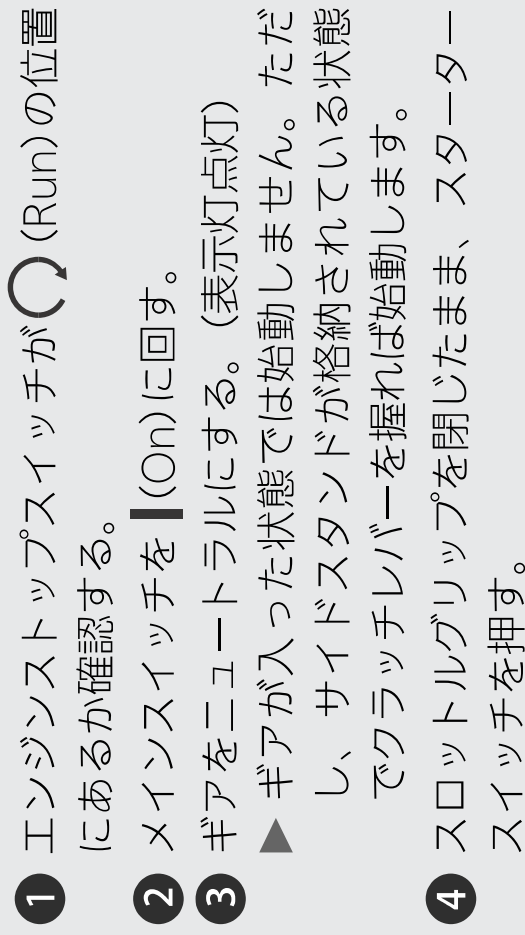 ❶ エンジンストップスイッチが (Run)の位置
にあるか確認する。
❷ メインスイッチを (On)に回す。
❸ ギアをニュートラルにする。(表示灯点灯)
▶ ギアが入った状態では始動しません。ただ
し、サイドスタンドが格納されている状態
でクラッチレバーを握れば始動します。
❹ スロットルグリップを閉じたまま、スターター
スイッチを押す。